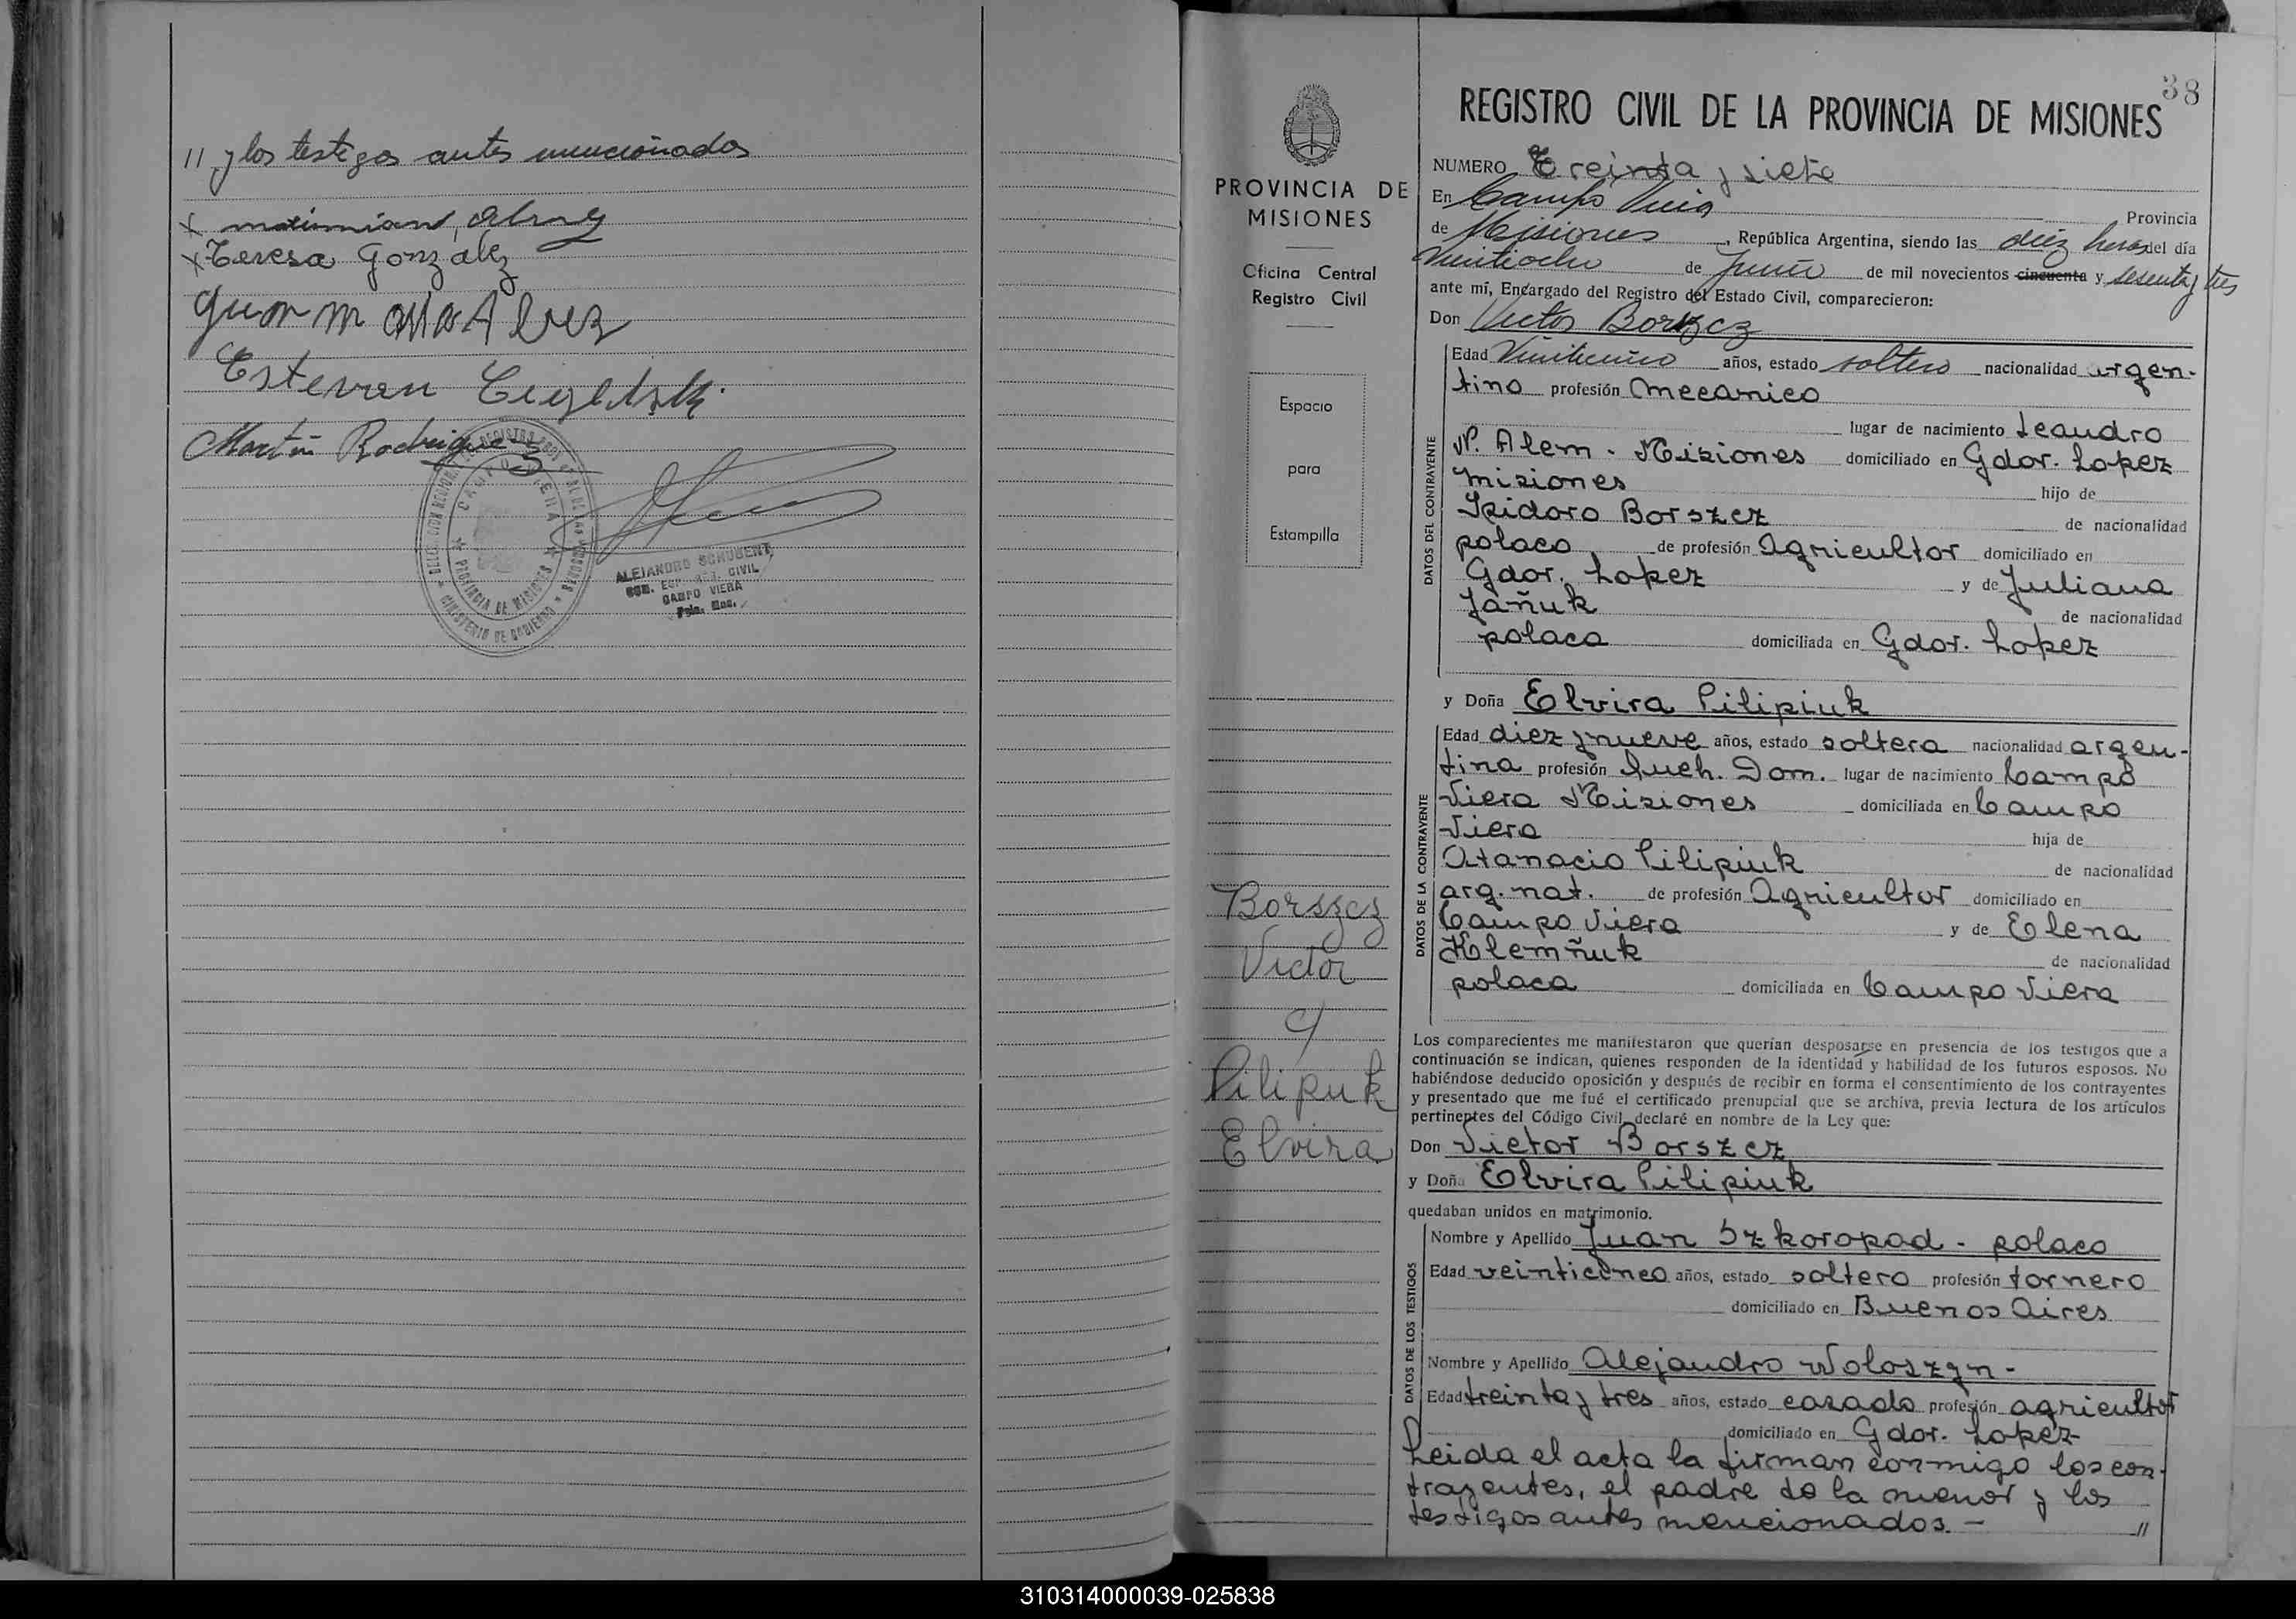 // y los testigos antes mencionados
x
x Teresa Gonzalez
Juan
Estevan
Martín Rodriguez
CAMPO VIERA
PROVINCIA DE MISIONES
MINISTERIO DE GOBIERNO
ALEJANDRO SCHUBERT
CIVIL
CAMPO VIERA
Pcia. Mnes.
38
PROVINCIA DE
MISIONES
Oficina Central
Registro Civil
Espacio
para
Estampilla
Borszcz
Victor
c/
Pilipuk
Elvira
REGISTRO CIVIL DE LA PROVINCIA DE MISIONES
NUMERO Treinta y siete
En Campo Viera Provincia
de Misiones, República Argentina, siendo las diez horas del día
Veintiocho de Junio de mil novecientos cincuenta y sesenta y tres
ante mí, Encargado del Registro del Estado Civil, comparecieron:
Don Victor Borszcz
Edad Veintiuno años, estado soltero nacionalidad argen-
tino profesión Mecanico
lugar de nacimiento Leandro
N. Alem - Misiones domiciliado en Gdor. Lopez
Misiones hijo de
Isidoro Borszcz de nacionalidad
polaco de profesión Agricultor domiciliado en
Gdor. Lopez y de Juliana
Jañuk de nacionalidad
polaca domiciliada en Gdor. Lopez
DATOS DEL CONTRAYENTE
y Doña Elvira Pilipiuk
Edad diez y nueve años, estado soltera nacionalidad argen-
tina profesión Queh. Dom. lugar de nacimiento Campo
Viera Misiones domiciliada en Campo
Viera hija de
Atanacio Pilipiuk de nacionalidad
arg. nat. de profesión Agricultor domiciliado en
Campo Viera y de Elena
Klemñuk de nacionalidad
polaca domiciliada en Campo Viera
DATOS DE LA CONTRAYENTE
Los comparecientes me manifestaron que querían desposarse en presencia de los testigos que a
continuación se indican, quienes responden de la identidad y habilidad de los futuros esposos. No
habiéndose deducido oposición y después de recibir en forma el consentimiento de los contrayentes
y presentado que me fué el certificado prenupcial que se archiva, previa lectura de los artículos
pertinentes del Código Civil, declaré en nombre de la Ley que:
Don Victor Borszcz
y Doña Elvira Pilipiuk
quedaban unidos en matrimonio.
Nombre y Apellido Juan Szkoropad - polaco
Edad veinticinco años, estado soltero profesión tornero
domiciliado en Buenos Aires
Nombre y Apellido Alejandro Woloszyn -
Edad treinta y tres años, estado casado profesión agricultor
domiciliado en Gdor. Lopez
DATOS DE LOS TESTIGOS
Leida el acta la firman conmigo los con-
trayentes, el padre de la menor y los
testigos antes mencionados. - //
310314000039-025838